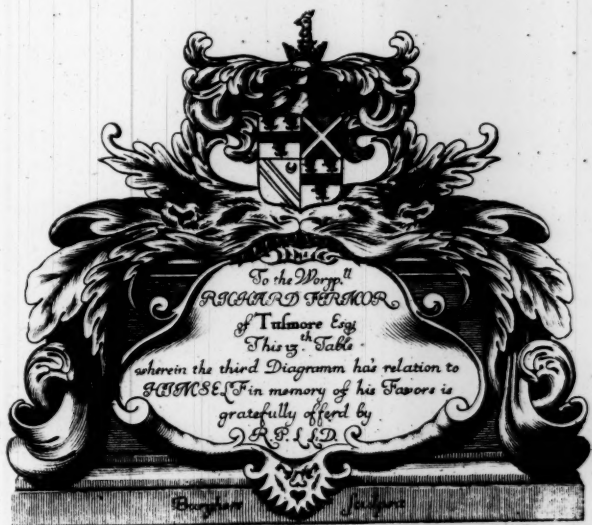 To the Worpp.ll
RICHARD FERMOR
of Tusmore Esq;
This 13.th Table
wherein the third Diagramm has relation to
HIMSELF in memory of his Favors is
gratefully offerd by
R. P. L L.D.
Burghers sculpsit